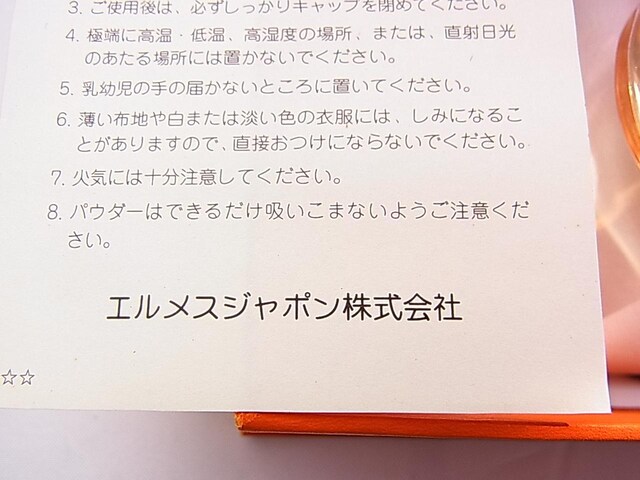 3. ご使用後は、必ずしっかりキャップを閉めてください。
4. 極端に高温・低温、高湿度の場所、または、直射日光
のあたる場所には置かないでください。
5. 乳幼児の手の届かないところに置いてください。
6. 薄い布地や白または淡い色の衣服には、しみになるこ
とがありますので、直接おつけにならないでください。
7. 火気には十分注意してください。
8. パウダーはできるだけ吸いこまないようご注意くだ
さい。
エルメスジャポン株式会社
☆☆